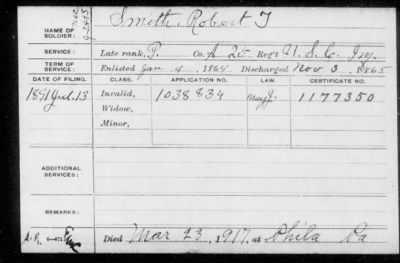 NAME OF SOLDIER: Smith, Robert T
SERVICE: Late rank, P. Co. A 25 Reg't U.S.C. Inf.
TERM OF SERVICE: Enlisted Jan 4, 1864 Discharged Nov 3, 1865
DATE OF FILING. CLASS. APPLICATION NO. LAW. CERTIFICATE NO.
1891 Jul. 13 Invalid, 1038834 1177350
Widow,
Minor,
ADDITIONAL SERVICES:
REMARKS:
Died Mar 23, 1917, at Phila Pa